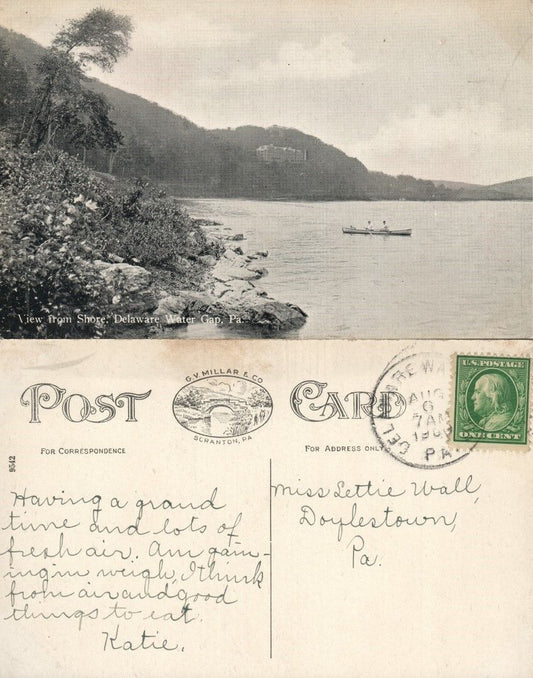 View from Shore, Delaware Water Gap, Pa.
POST CARD
G.V. MILLAR & CO
SCRANTON, PA
FOR CORRESPONDENCE
FOR ADDRESS ONLY
DELAWARE WA
AUG
6
7AM
PA.
U.S. POSTAGE
ONE CENT
9542
Having a grand
time and lots of
fresh air. Am gain-
ing in weigh, I think
from air and good
things to eat.
Katie.
Miss Lettie Wall,
Doylestown,
Pa.